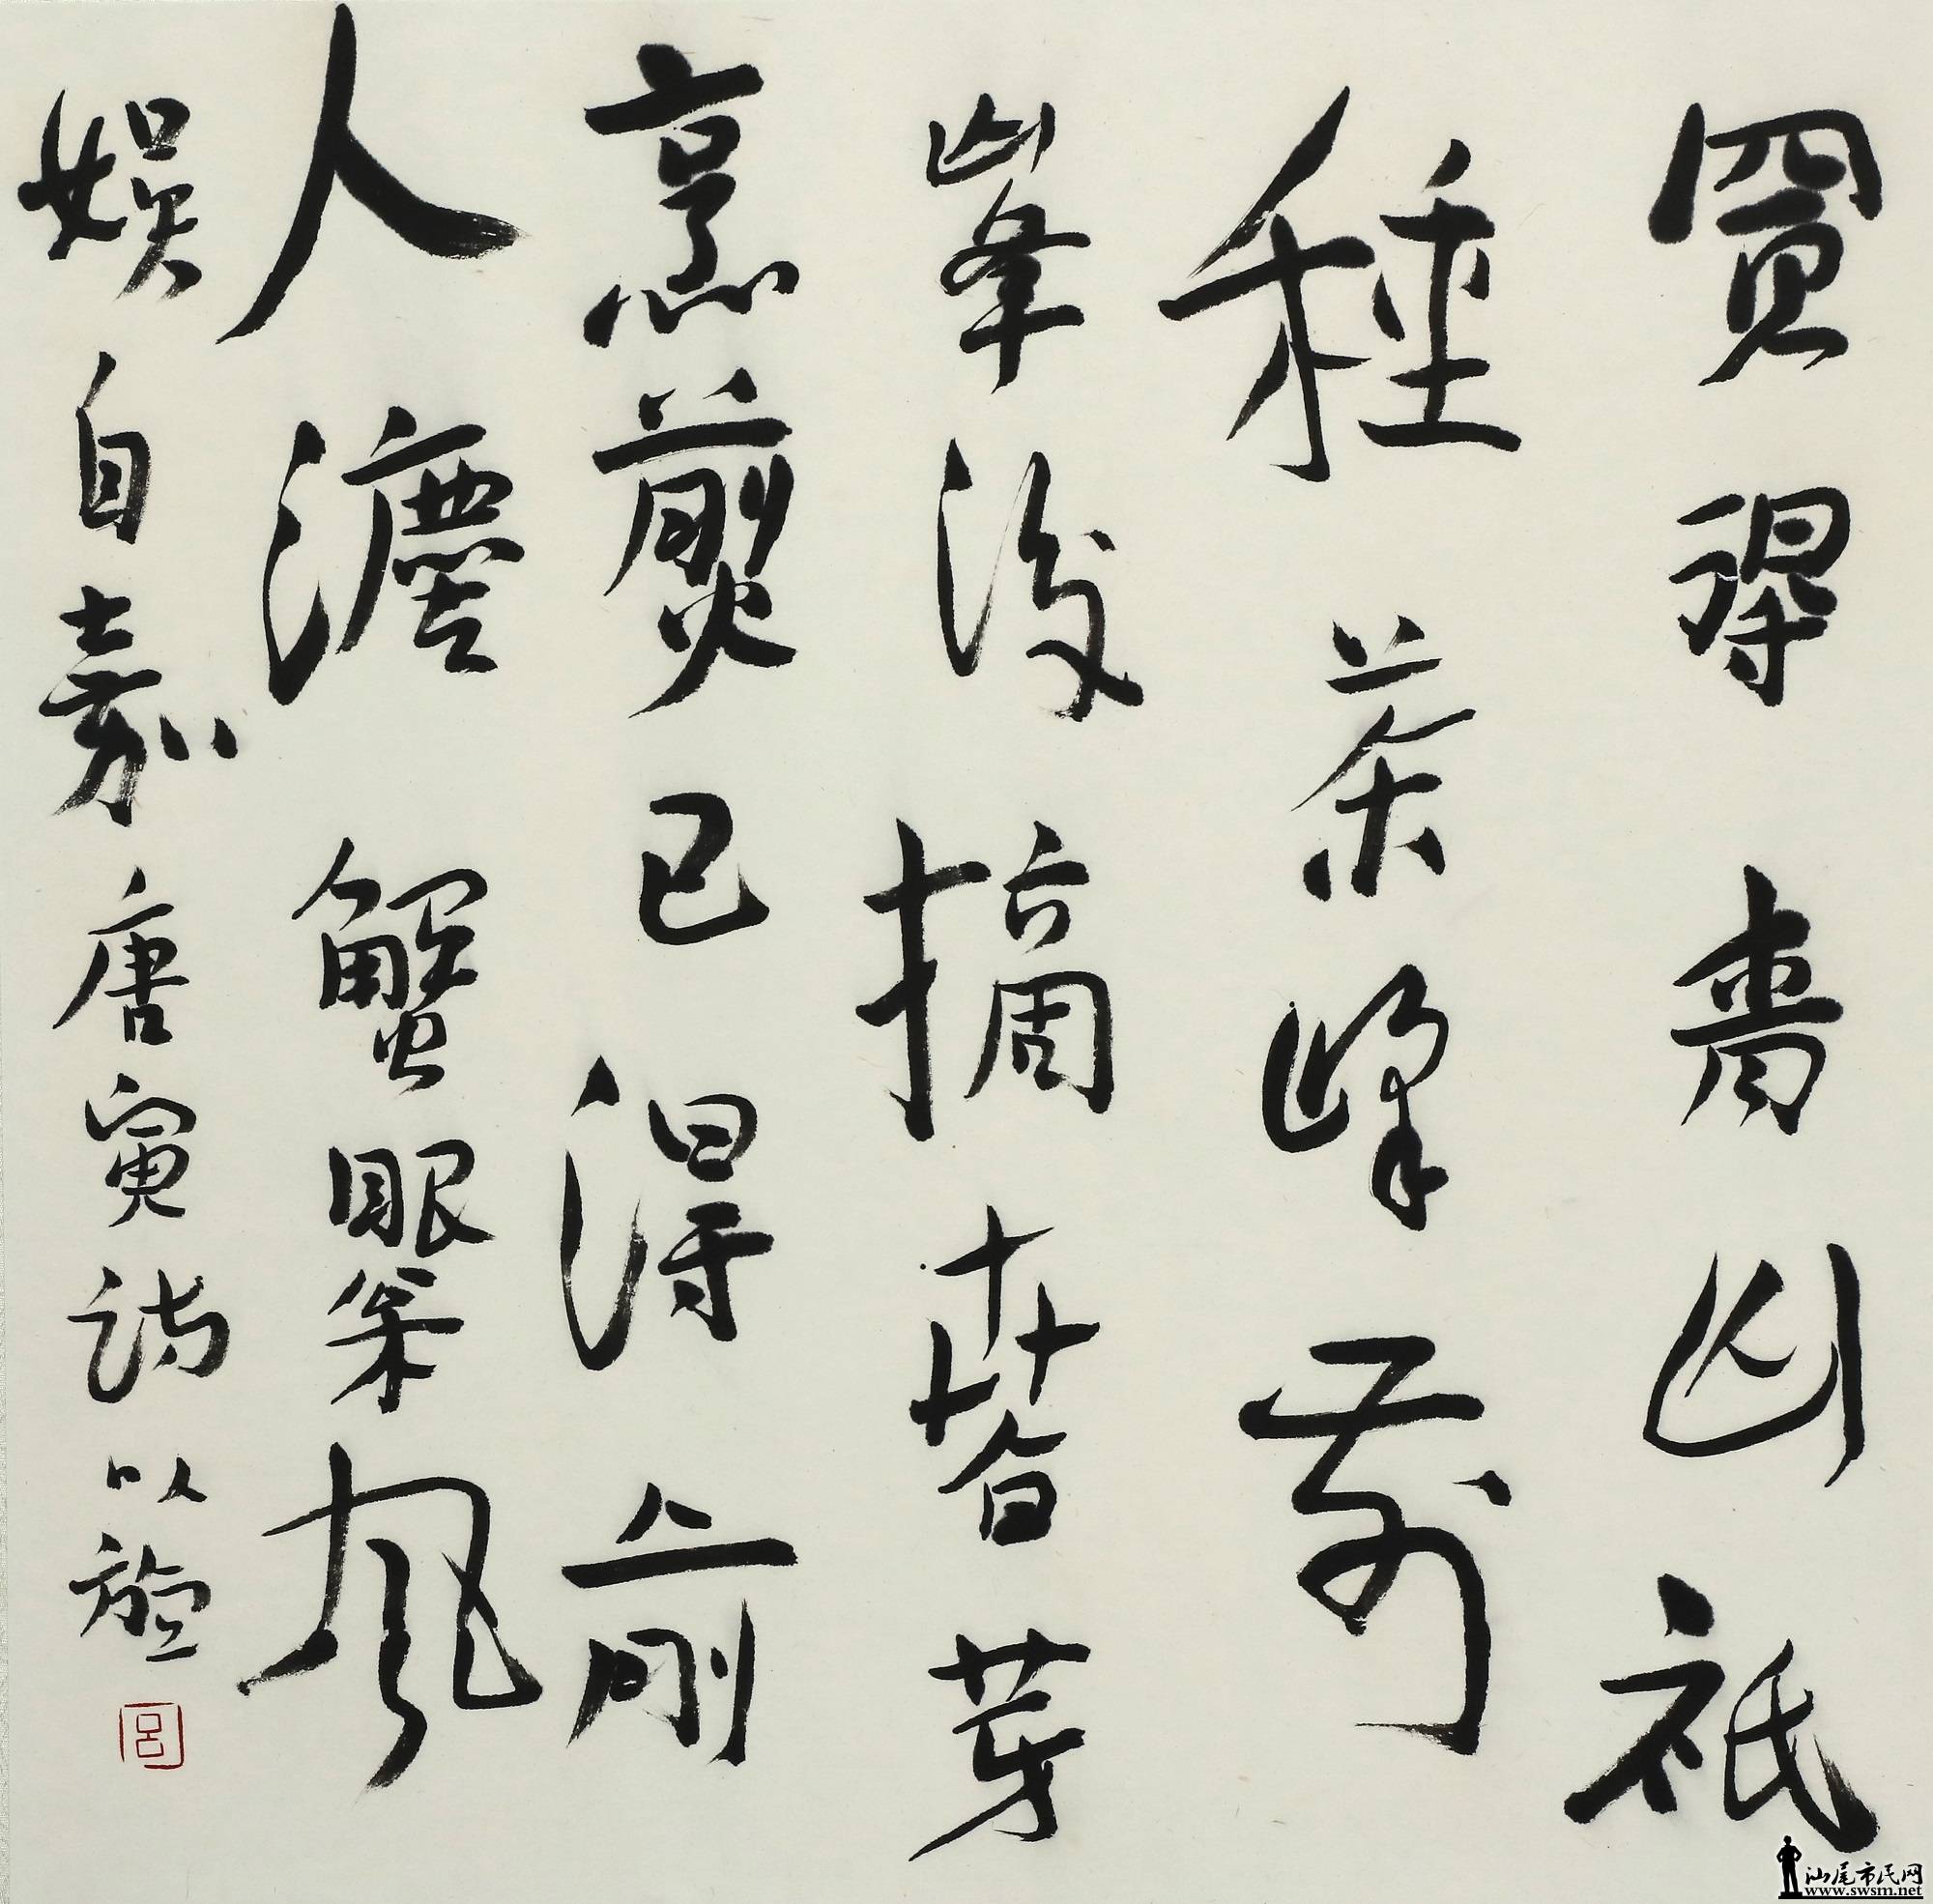 買得青山祇
種茶峰前
峯後摘春芽
烹煎已得前
人灋蟹眼松風
娱自嘉唐寅詩以
汕尾市民网
www.swsm.net